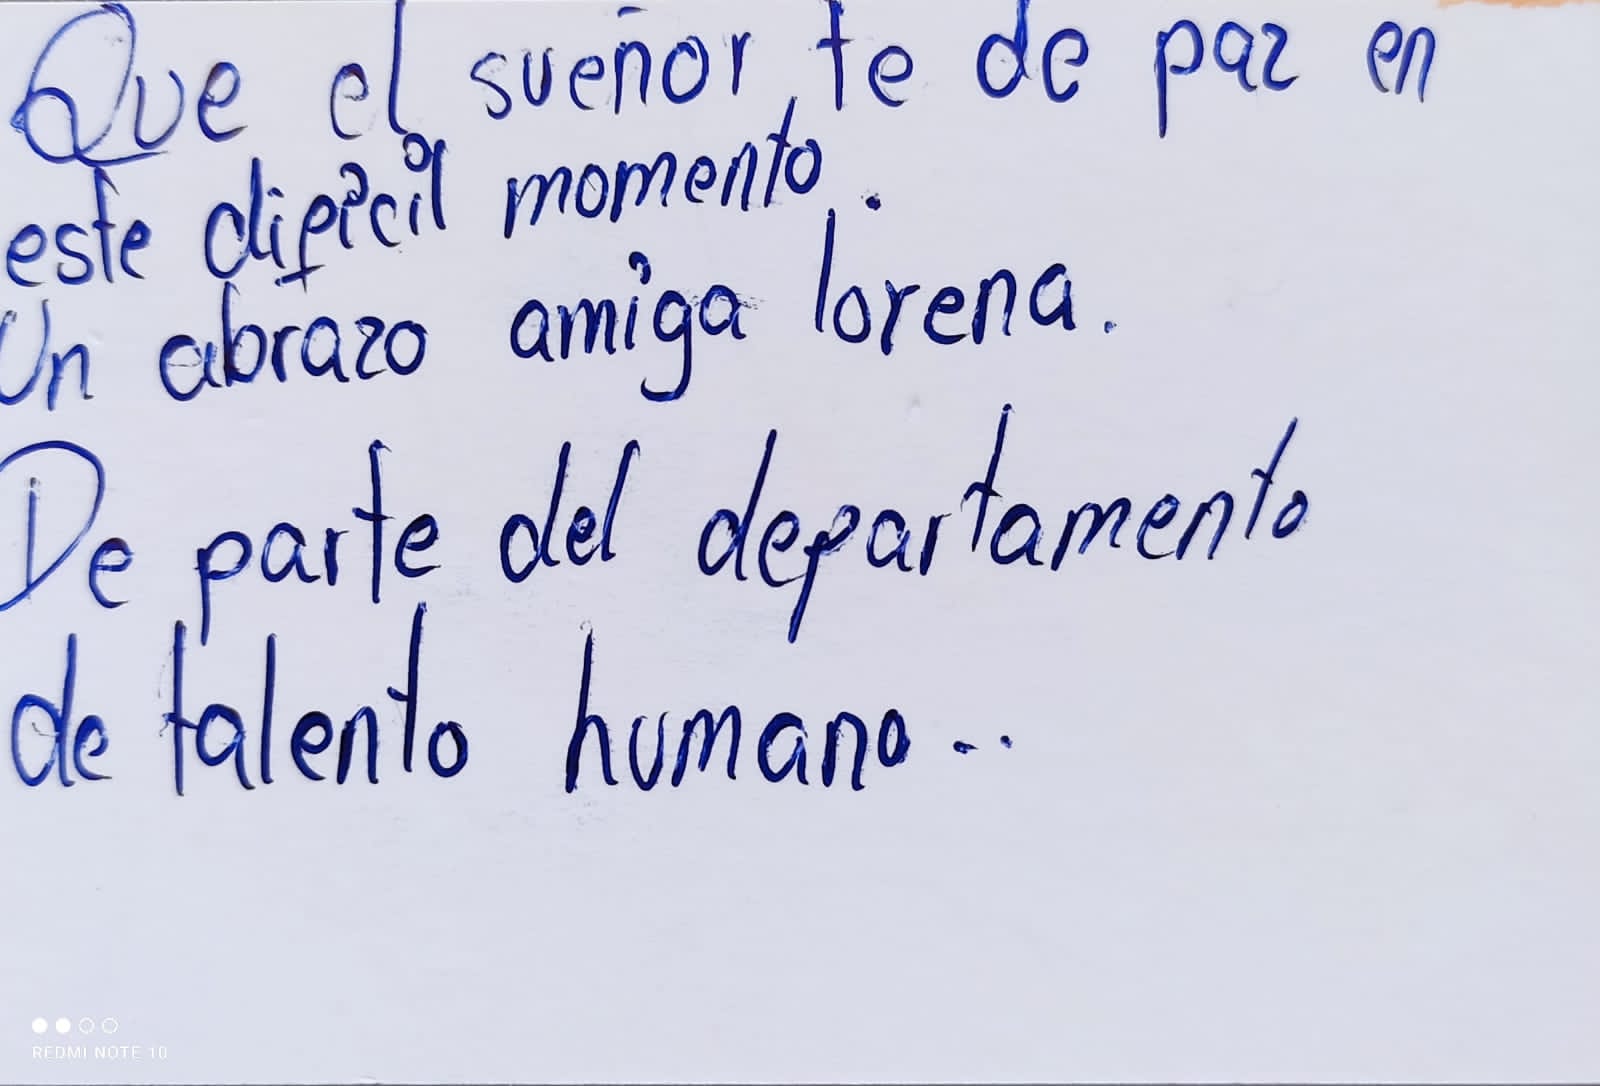 Que el sueñor te de paz en
este dificil momento.
Un abrazo amiga lorena.
De parte del departamento
de talento humano..
REDMI NOTE 10